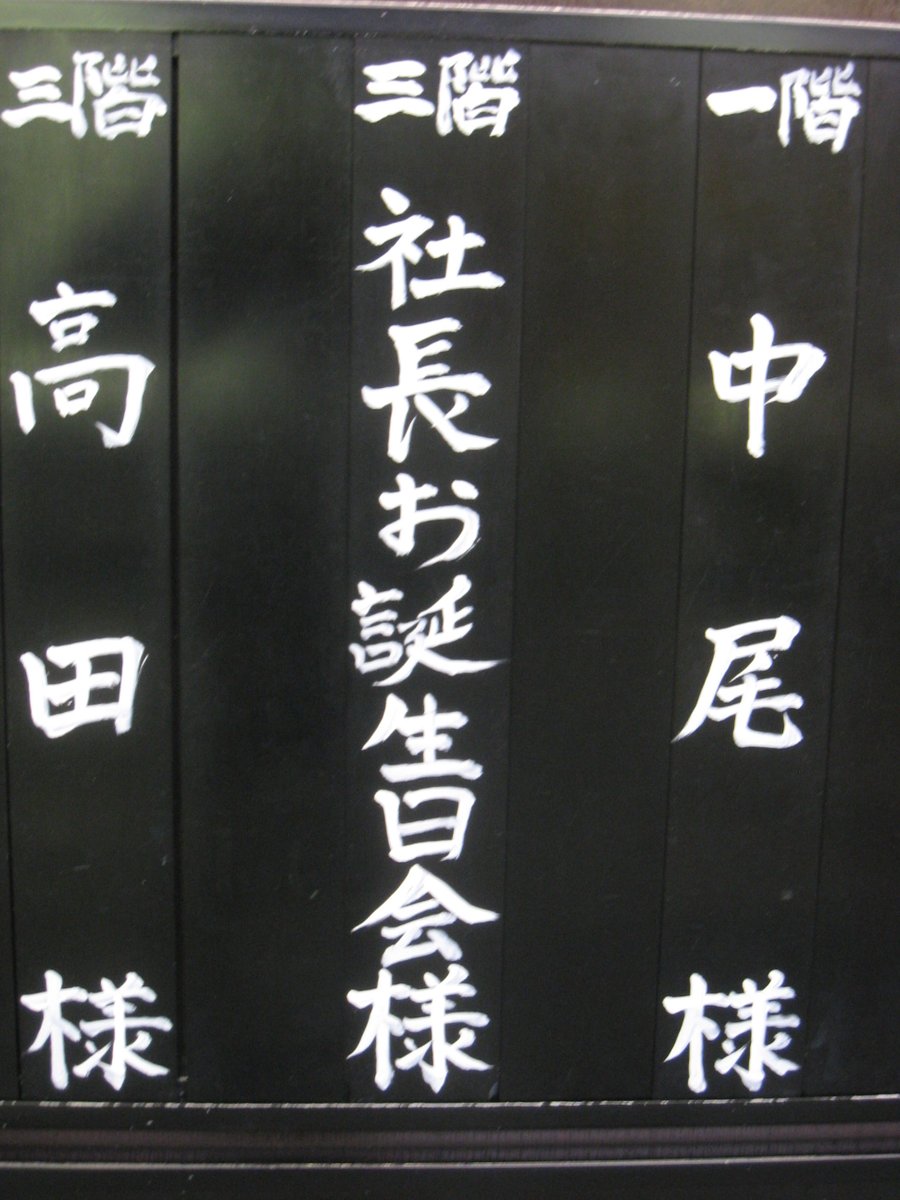 一階 中尾様
三階 社長お誕生日会様
三階 高田様